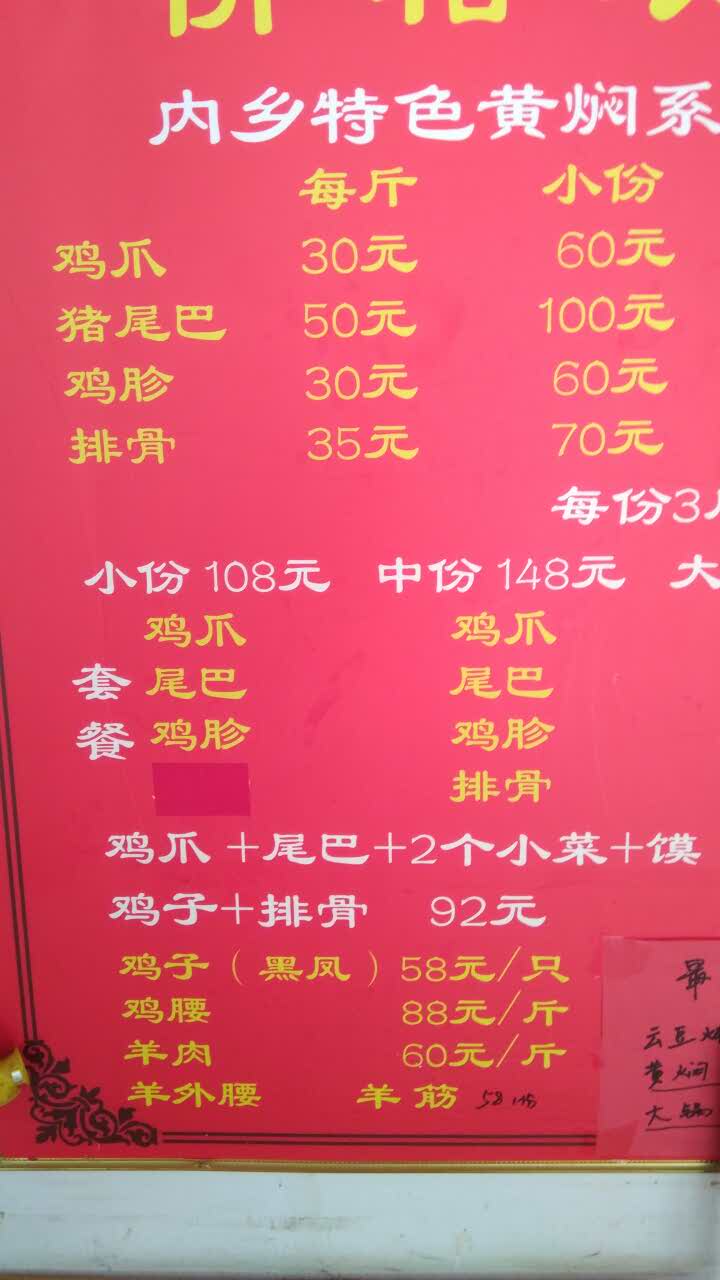 内乡特色黄焖系
每斤 小份
鸡爪 30元 60元
猪尾巴 50元 100元
鸡胗 30元 60元
排骨 35元 70元
每份3
小份 108元 中份 148元 大
鸡爪 鸡爪
套 尾巴 尾巴
餐 鸡胗 鸡胗
排骨
鸡爪+尾巴+2个小菜+馍
鸡子+排骨 92元
鸡子（黑凤）58元/只
鸡腰 88元/斤
羊肉 60元/斤
羊外腰 羊筋 58
最
云豆
黄焖
大锅